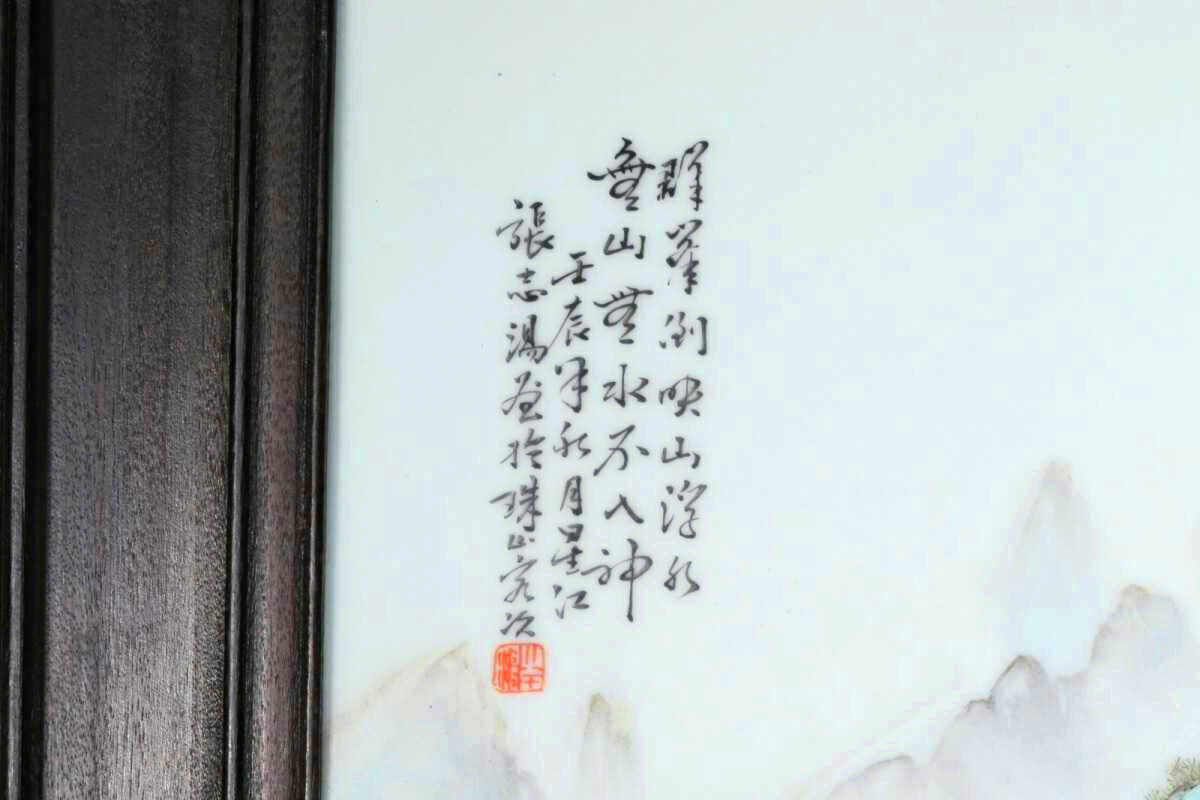 群峯倒映山浮水
無山無水不入神
壬辰年秋月星江
張志湯畫於珠山客次
志湯